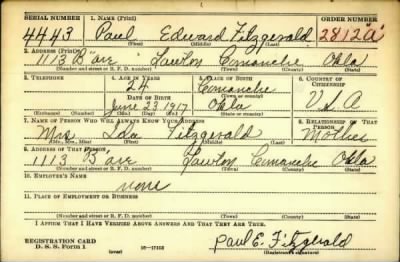 SERIAL NUMBER 1. NAME (Print) ORDER NUMBER
4443 Paul Edward Fitzgerald 2812"A"
(First) (Middle) (Last)
2. ADDRESS (Print)
1113 B ave Lawton Comanche Okla
(Number and street or R. F. D. number) (Town) (County) (State)
3. TELEPHONE 4. AGE IN YEARS 5. PLACE OF BIRTH 6. COUNTRY OF CITIZENSHIP
24 Comanche
DATE OF BIRTH (Town or county)
June 23 1917 Okla U S A
(Exchange) (Number) (Mo.) (Day) (Yr.) (State or country)
7. NAME OF PERSON WHO WILL ALWAYS KNOW YOUR ADDRESS 8. RELATIONSHIP OF THAT PERSON
Mrs Ida Fitzgerald Mother
(Mr., Mrs., Miss) (First) (Middle) (Last)
9. ADDRESS OF THAT PERSON
1113 B ave Lawton Comanche Okla
(Number and street or R. F. D. number) (Town) (County) (State)
10. EMPLOYER'S NAME
none
11. PLACE OF EMPLOYMENT OR BUSINESS
(Number and street or R. F. D. number) (Town) (County) (State)
I AFFIRM THAT I HAVE VERIFIED ABOVE ANSWERS AND THAT THEY ARE TRUE.
REGISTRATION CARD
D. S. S. Form 1 (over) 16—17105 Paul E. Fitzgerald
(Registrant's signature)